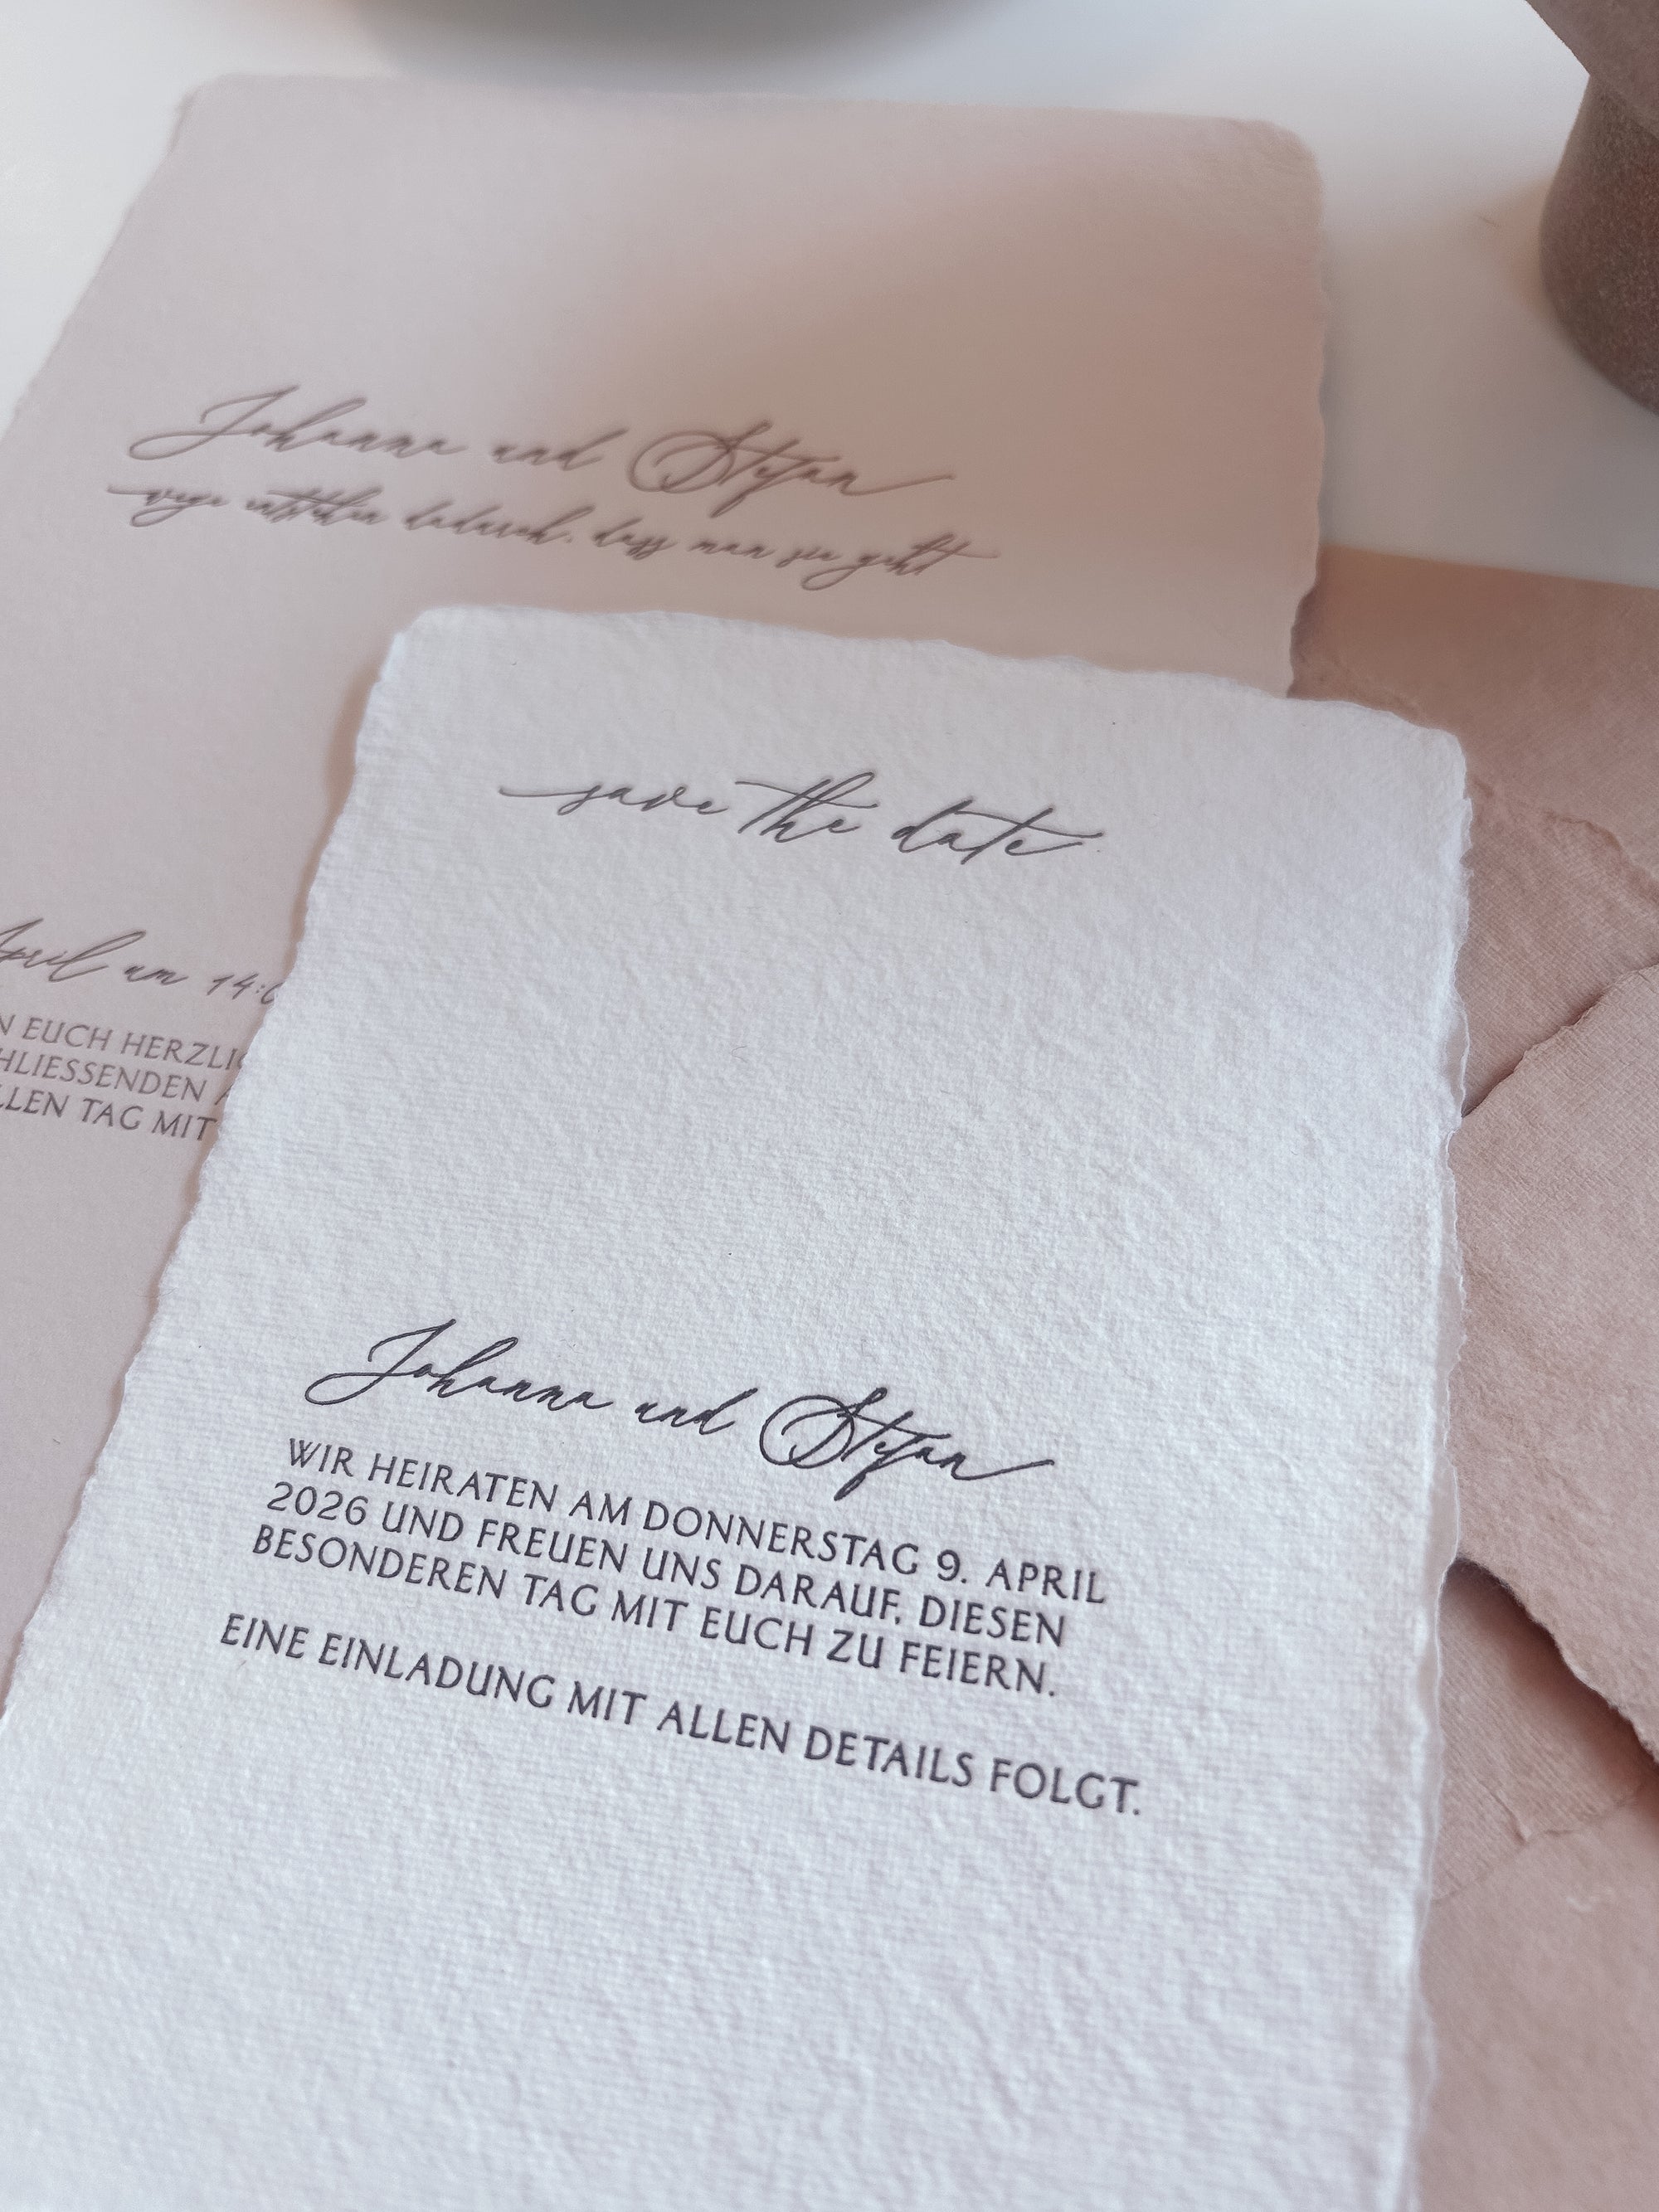 Johanna und Stefan
wege entstehen dadurch, dass man sie geht
April um 14:0
N EUCH HERZLIC
HLIESSENDEN A
LLEN TAG MIT
save the date
Johanna und Stefan
WIR HEIRATEN AM DONNERSTAG 9. APRIL
2026 UND FREUEN UNS DARAUF, DIESEN
BESONDEREN TAG MIT EUCH ZU FEIERN.
EINE EINLADUNG MIT ALLEN DETAILS FOLGT.